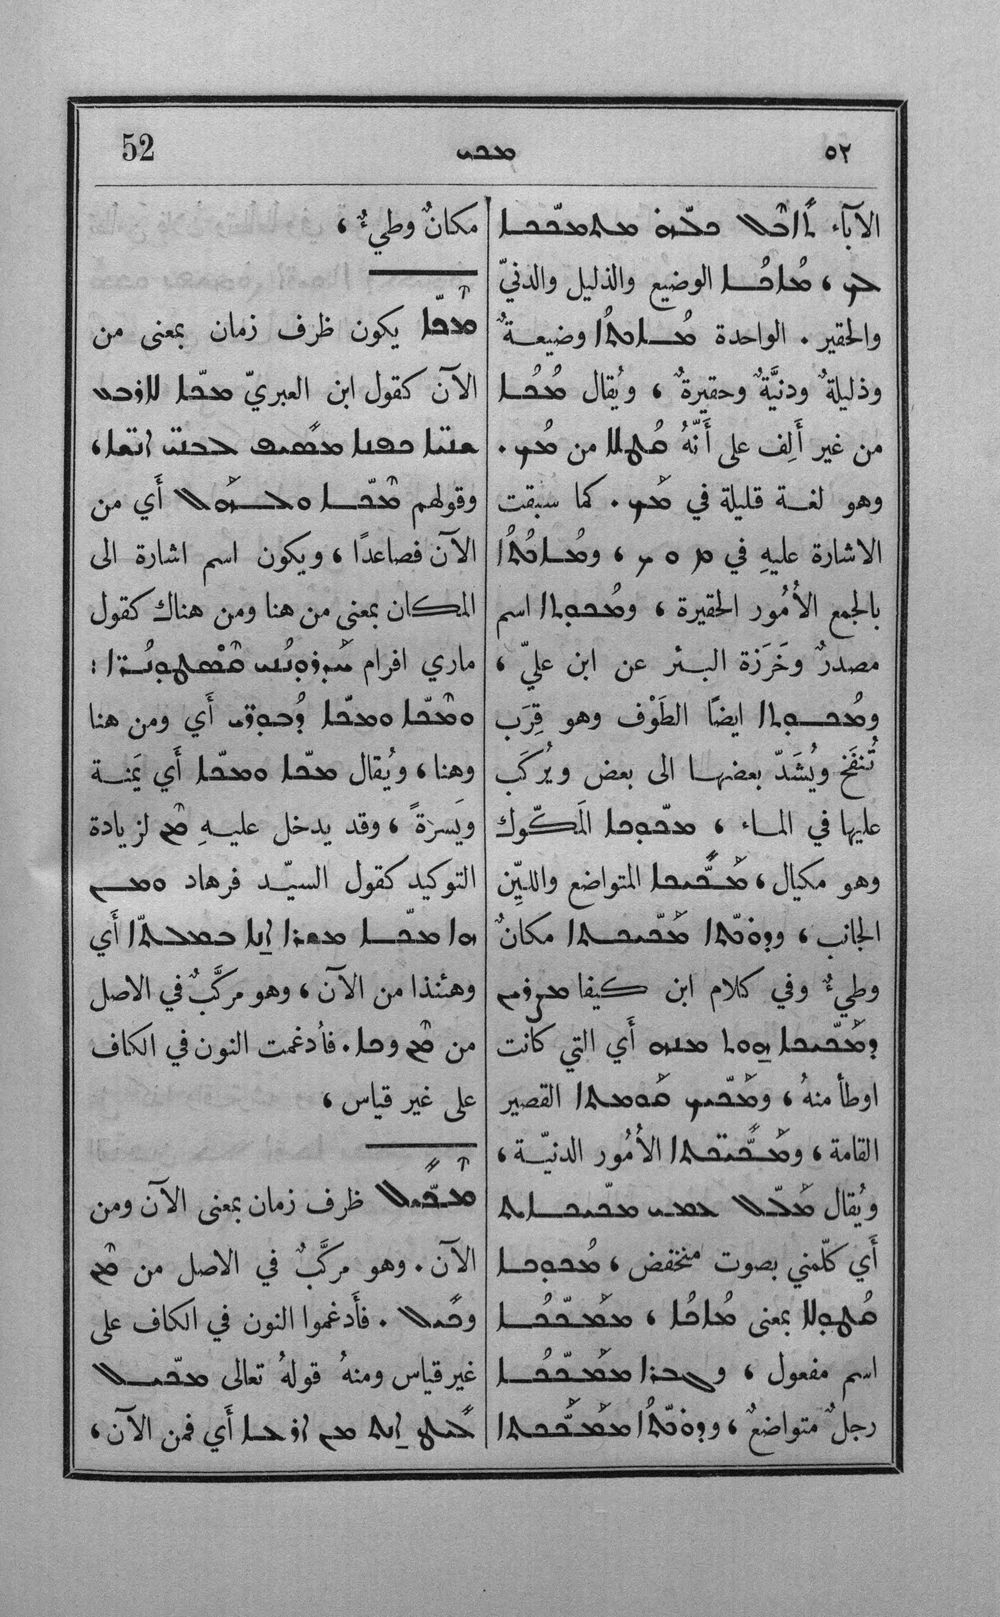 ٥٢ ܡܟܝ 52
الآباء
ܡܐܟܐ الوضيع والذليل والدنيّ
والحقير . الواحدة ܡܐܟܬܐ وضيعةٌ
وذليلةٌ ودنيَّةٌ وحقيرةٌ ، ويُقال ܡܟܐ
من غير أَلِف على أَنَّهُ ܩܛܠܐ من ܡܟ .
وهو لغة قليلة في ܡܟ . كما سبقت
الاشارة عليهِ في ܡ ܘ ܟ ، وܡܐܟܬܐ
بالجمع الأُمُور الحقيرة ، وܡܟܘܬܐ اسم
مصدرٌ وخَرَزة البئر عن ابن عليّ ،
وܡܟܘܬܐ ايضًا الطَوْف وهو قِرَب
تُنفَخ ويُشَدّ بعضها الى بعض ويُركَب
عليها في الماء ، ܡܟܘܟܐ المَكّوك
وهو مكيال ، ܡܟܝܟܐ المتواضع والليّن
الجانب ، وܕܘܟܬܐ ܡܟܝܟܬܐ مكانٌ
وطيءٌ وفي كلام ابن كيفا
ܕܡܟܝܟܐ ܗܘܬ ܡܢܗ أَي التي كانت
اوطأ منهُ ، وܡܟܝܟ ܩܘܡܬܐ القصير
القامة ، وܡܟܝܟܬܐ الأُمُور الدنيّة ،
ويُقال ܡܠܠ ܥܡܝ ܡܟܝܟܐܝܬ
أَي كلّمني بصوت منخفض ، ܡܟܘܟܐ
ܩܛܘܠܐ بمعنى ܡܐܟܐ ، ܡܡܟܟܐ
اسم مفعول ، وܓܒܪܐ ܡܡܟܟܐ
رجلٌ متواضعٌ ، وܕܘܟܬܐ ܡܡܟܟܬܐ
مكانٌ وطيءٌ ،
ܡܟܐ يكون ظرف زمان بمعنى من
الآن كقول ابن العبريّ ܡܟܐ
وقولهم ܡܟܐ ܘܠܗܠ أَي من
الآن فصاعدًا ، ويكون اسم اشارة الى
المكان بمعنى من هنا ومن هناك كقول
ماري افرام
ܘܡܟܐ ܘܡܟܐ أَي ومن هنا
وهنا ، ويُقال ܡܟܐ ܘܡܟܐ أَي يَمنة
ويَسرةً ، وقد يدخل عليهِ ܡܢ لزيادة
التوكيد كقول السيّد فرهاد ܘܡܢ
ܗܐ ܡܟܐ ܡܫܪܐ ܐܢܐ أَي
وهئنذا من الآن ، وهو مركَّبٌ في الاصل
من ܡܢ وܟܐ . فأدغمت النون في الكاف
على غير قياس ،
ܡܟܝܠ ظرف زمان بمعنى الآن ومن
الآن . وهو مركَّبٌ في الاصل من ܡܢ
وܟܝܠ . فأَدغموا النون في الكاف على
غير قياس ومنهُ قولهُ تعالى ܡܟܝܠ
أَي فمن الآن ،